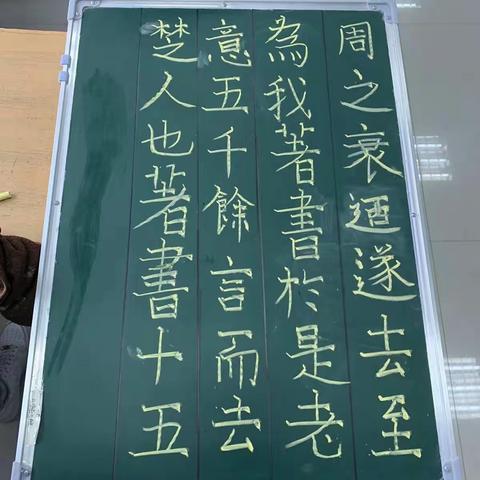 周之衰迺遂去至
為我著書於是老
意五千餘言而去
楚人也著書十五